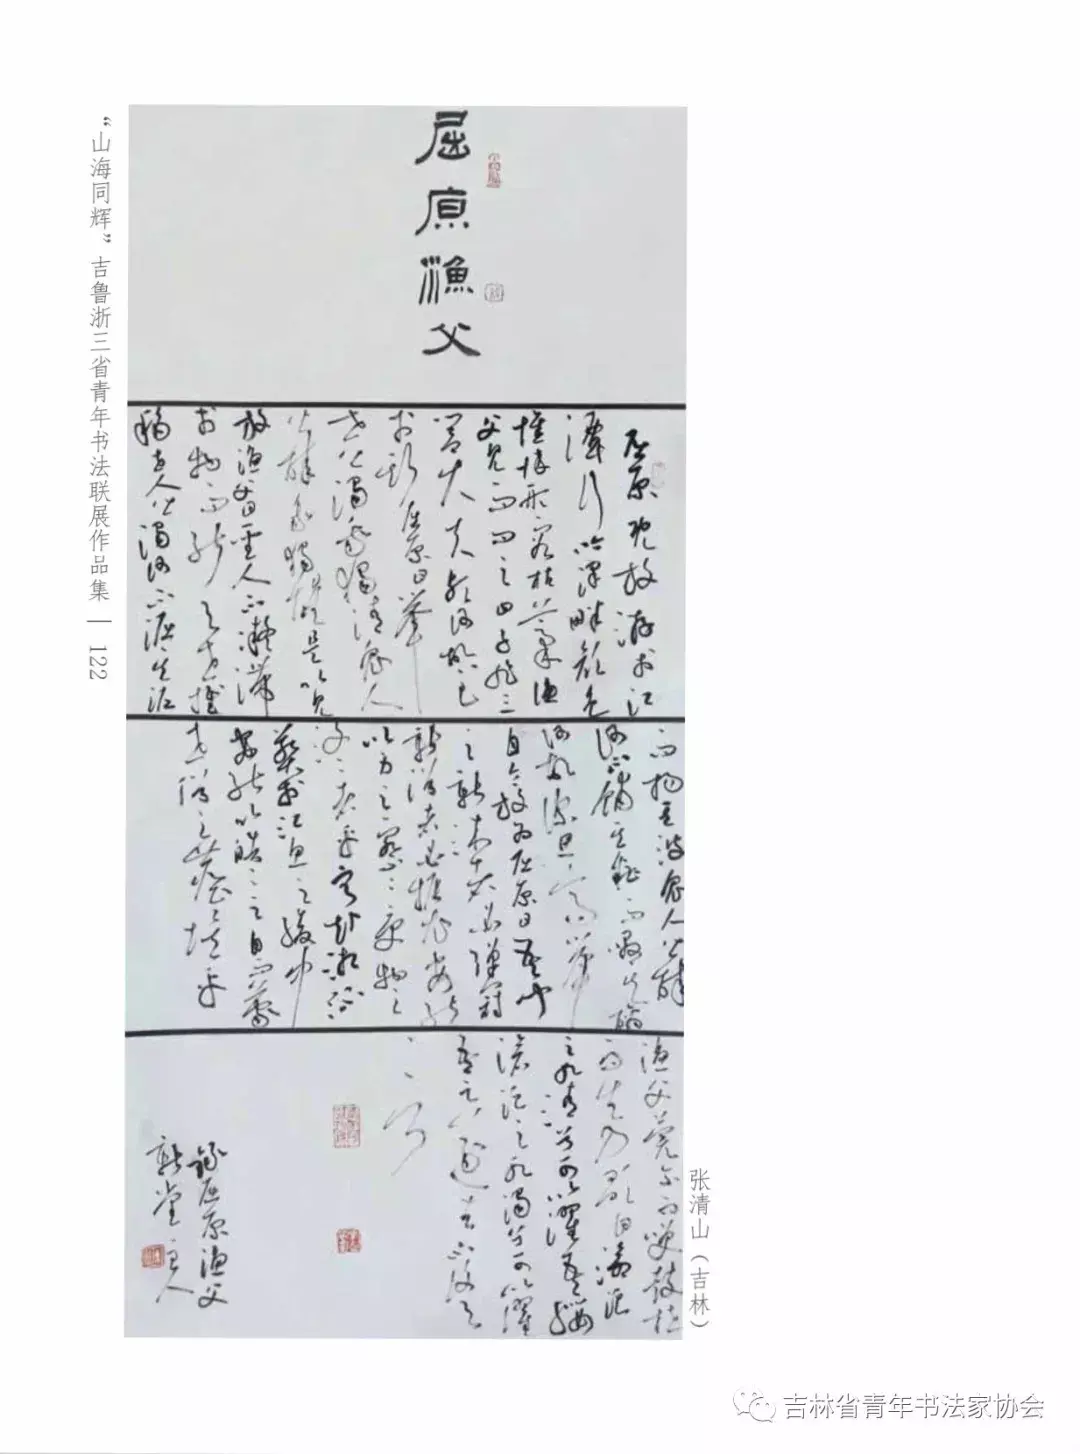 “山海同辉”吉鲁浙三省青年书法联展作品集 — 122
屈原渔父
屈原既放游于江
潭行吟泽畔颜色
憔悴形容枯槁渔
父见而问之曰子非三
闾大夫与何故至
于斯屈原曰举
世皆浊我独清众人
皆醉我独醒是以见
放渔父曰圣人不凝滞
于物而能与世推
移世人皆浊何不淈其泥
而扬其波众人皆醉
何不餔其糟而歠其醨
何故深思高举
自令放为屈原曰吾闻
之新沐者必弹冠
新浴者必振衣安能
以身之察察受物之
汶汶者乎宁赴湘流
葬于江鱼之腹中
安能以皓皓之白而蒙
世俗之尘埃乎
渔父莞尔而笑鼓枻
而去乃歌曰沧浪
之水清兮可以濯吾缨
沧浪之水浊兮可以濯
吾足遂去不复与
言
录屈原渔父
新堂主人
张清山（吉林）
吉林省青年书法家协会